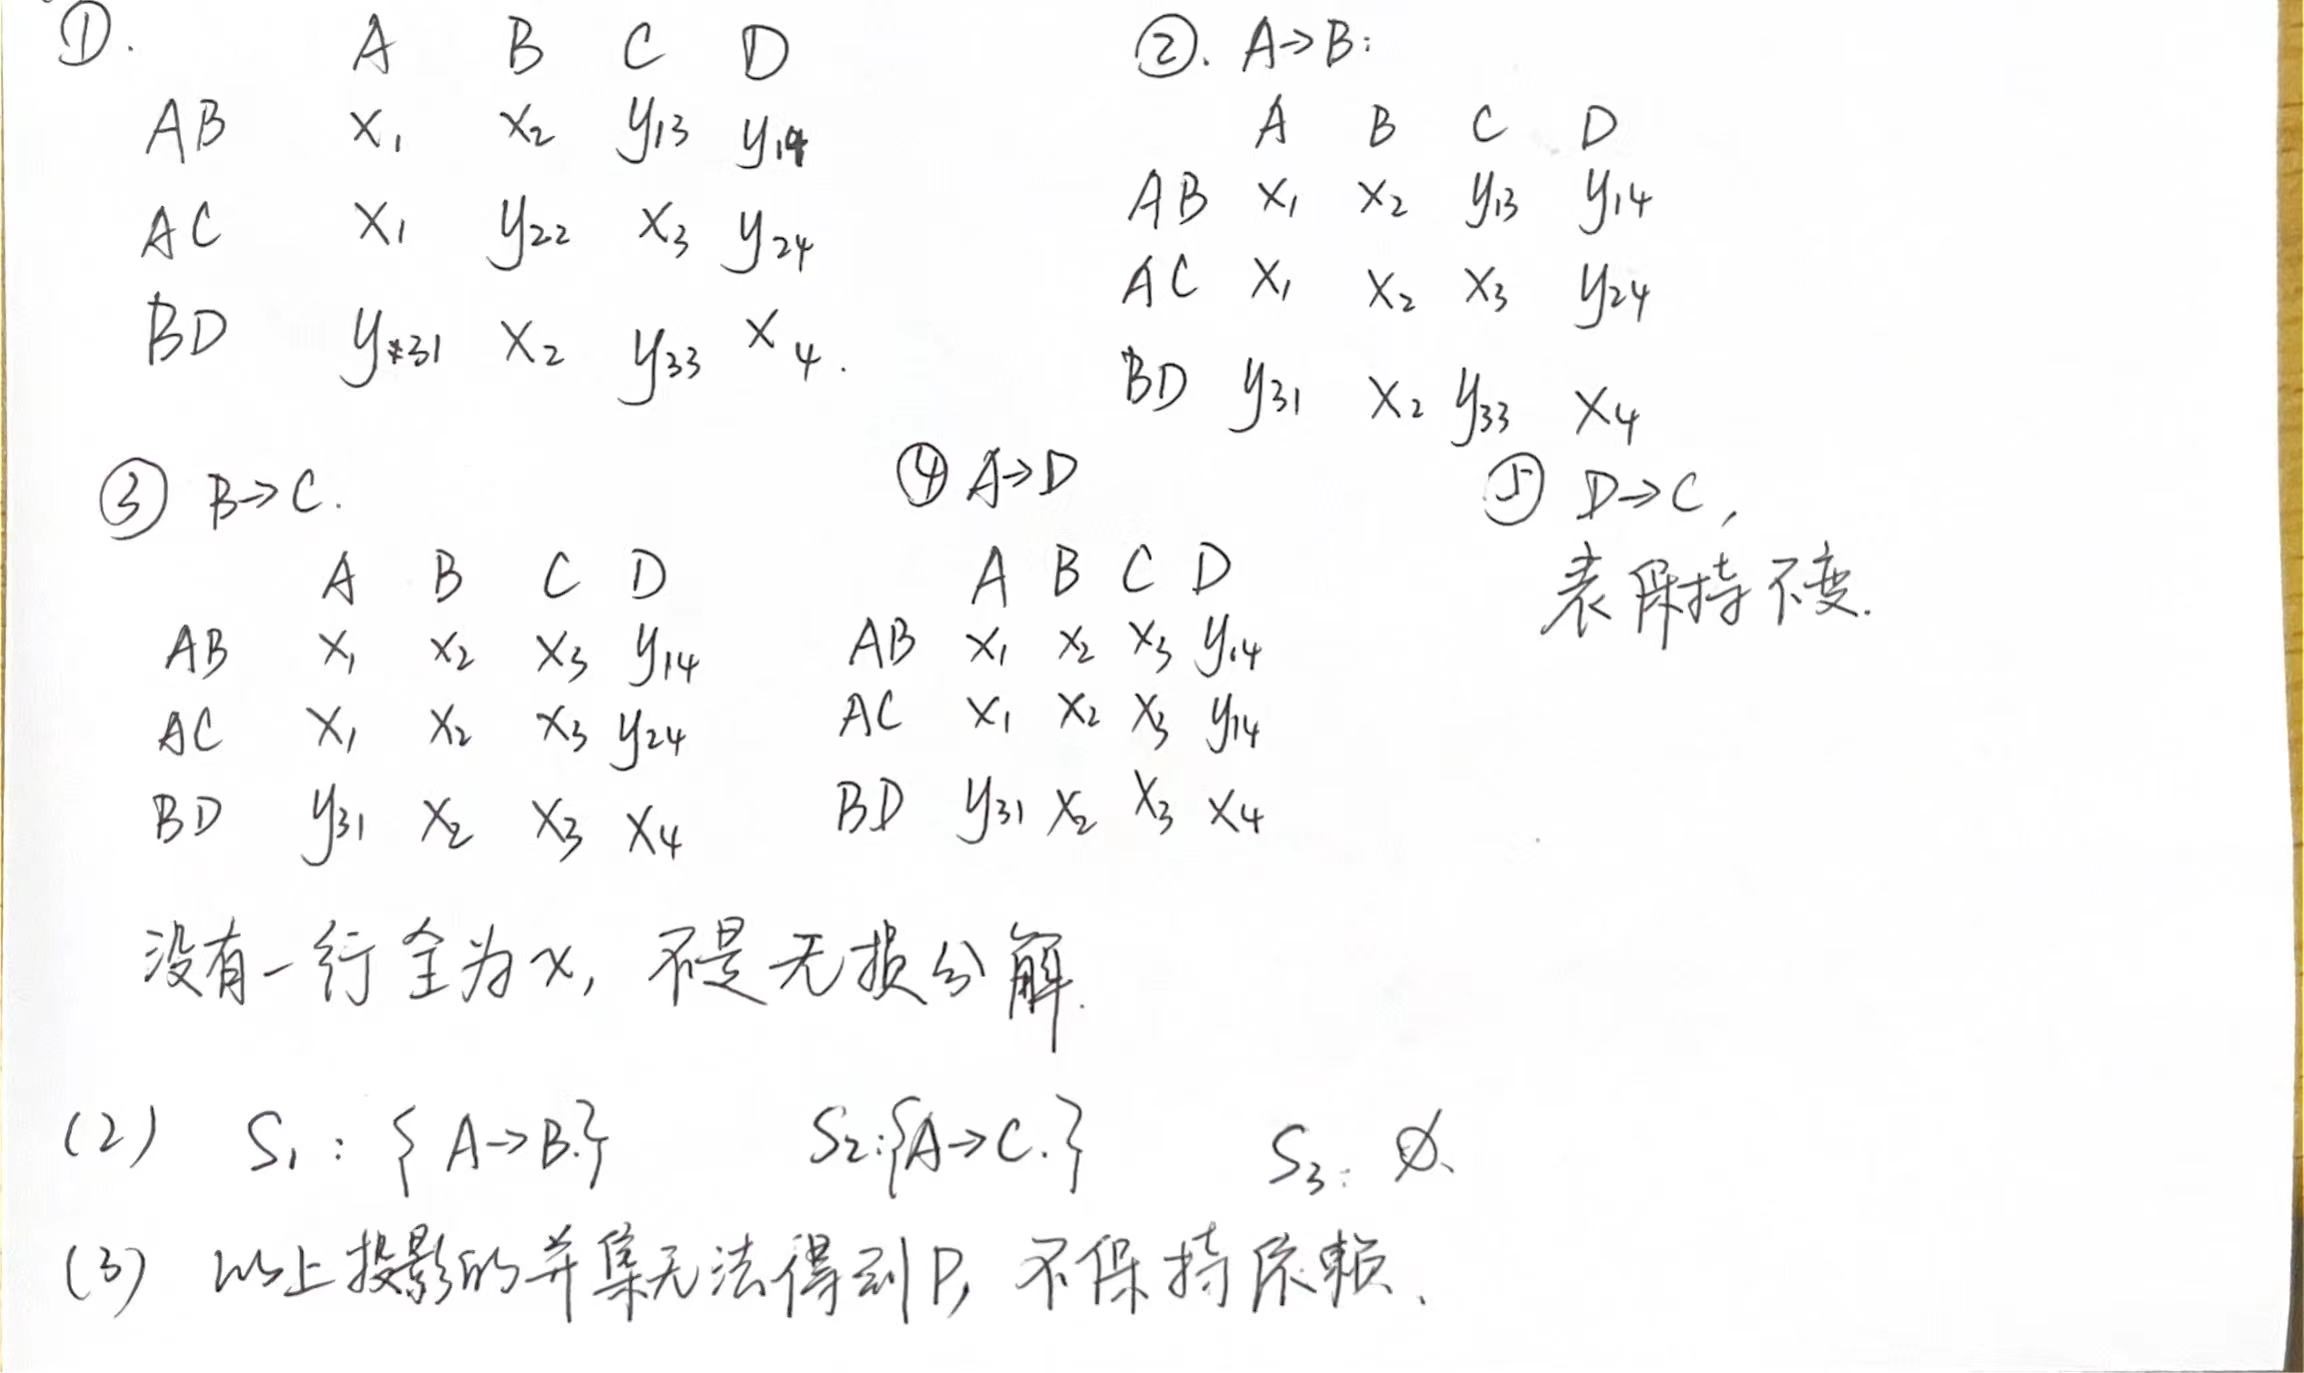 ①.
A B C D
AB x₁ x₂ y₁₃ y₁₄
AC x₁ y₂₂ x₃ y₂₄
BD y₃₁ x₂ y₃₃ x₄.
②. A→B:
A B C D
AB x₁ x₂ y₁₃ y₁₄
AC x₁ x₂ x₃ y₂₄
BD y₃₁ x₂ y₃₃ x₄
③ B→C.
A B C D
AB x₁ x₂ x₃ y₁₄
AC x₁ x₂ x₃ y₂₄
BD y₃₁ x₂ x₃ x₄
④ A→D
A B C D
AB x₁ x₂ x₃ y₁₄
AC x₁ x₂ x₃ y₁₄
BD y₃₁ x₂ x₃ x₄
⑤ D→C,
表保持不变.
没有一行全为x, 不是无损分解.
(2) S₁: {A→B.} S₂:{A→C.} S₃: ∅.
(3) 以上投影的并集无法得到P, 不保持依赖.